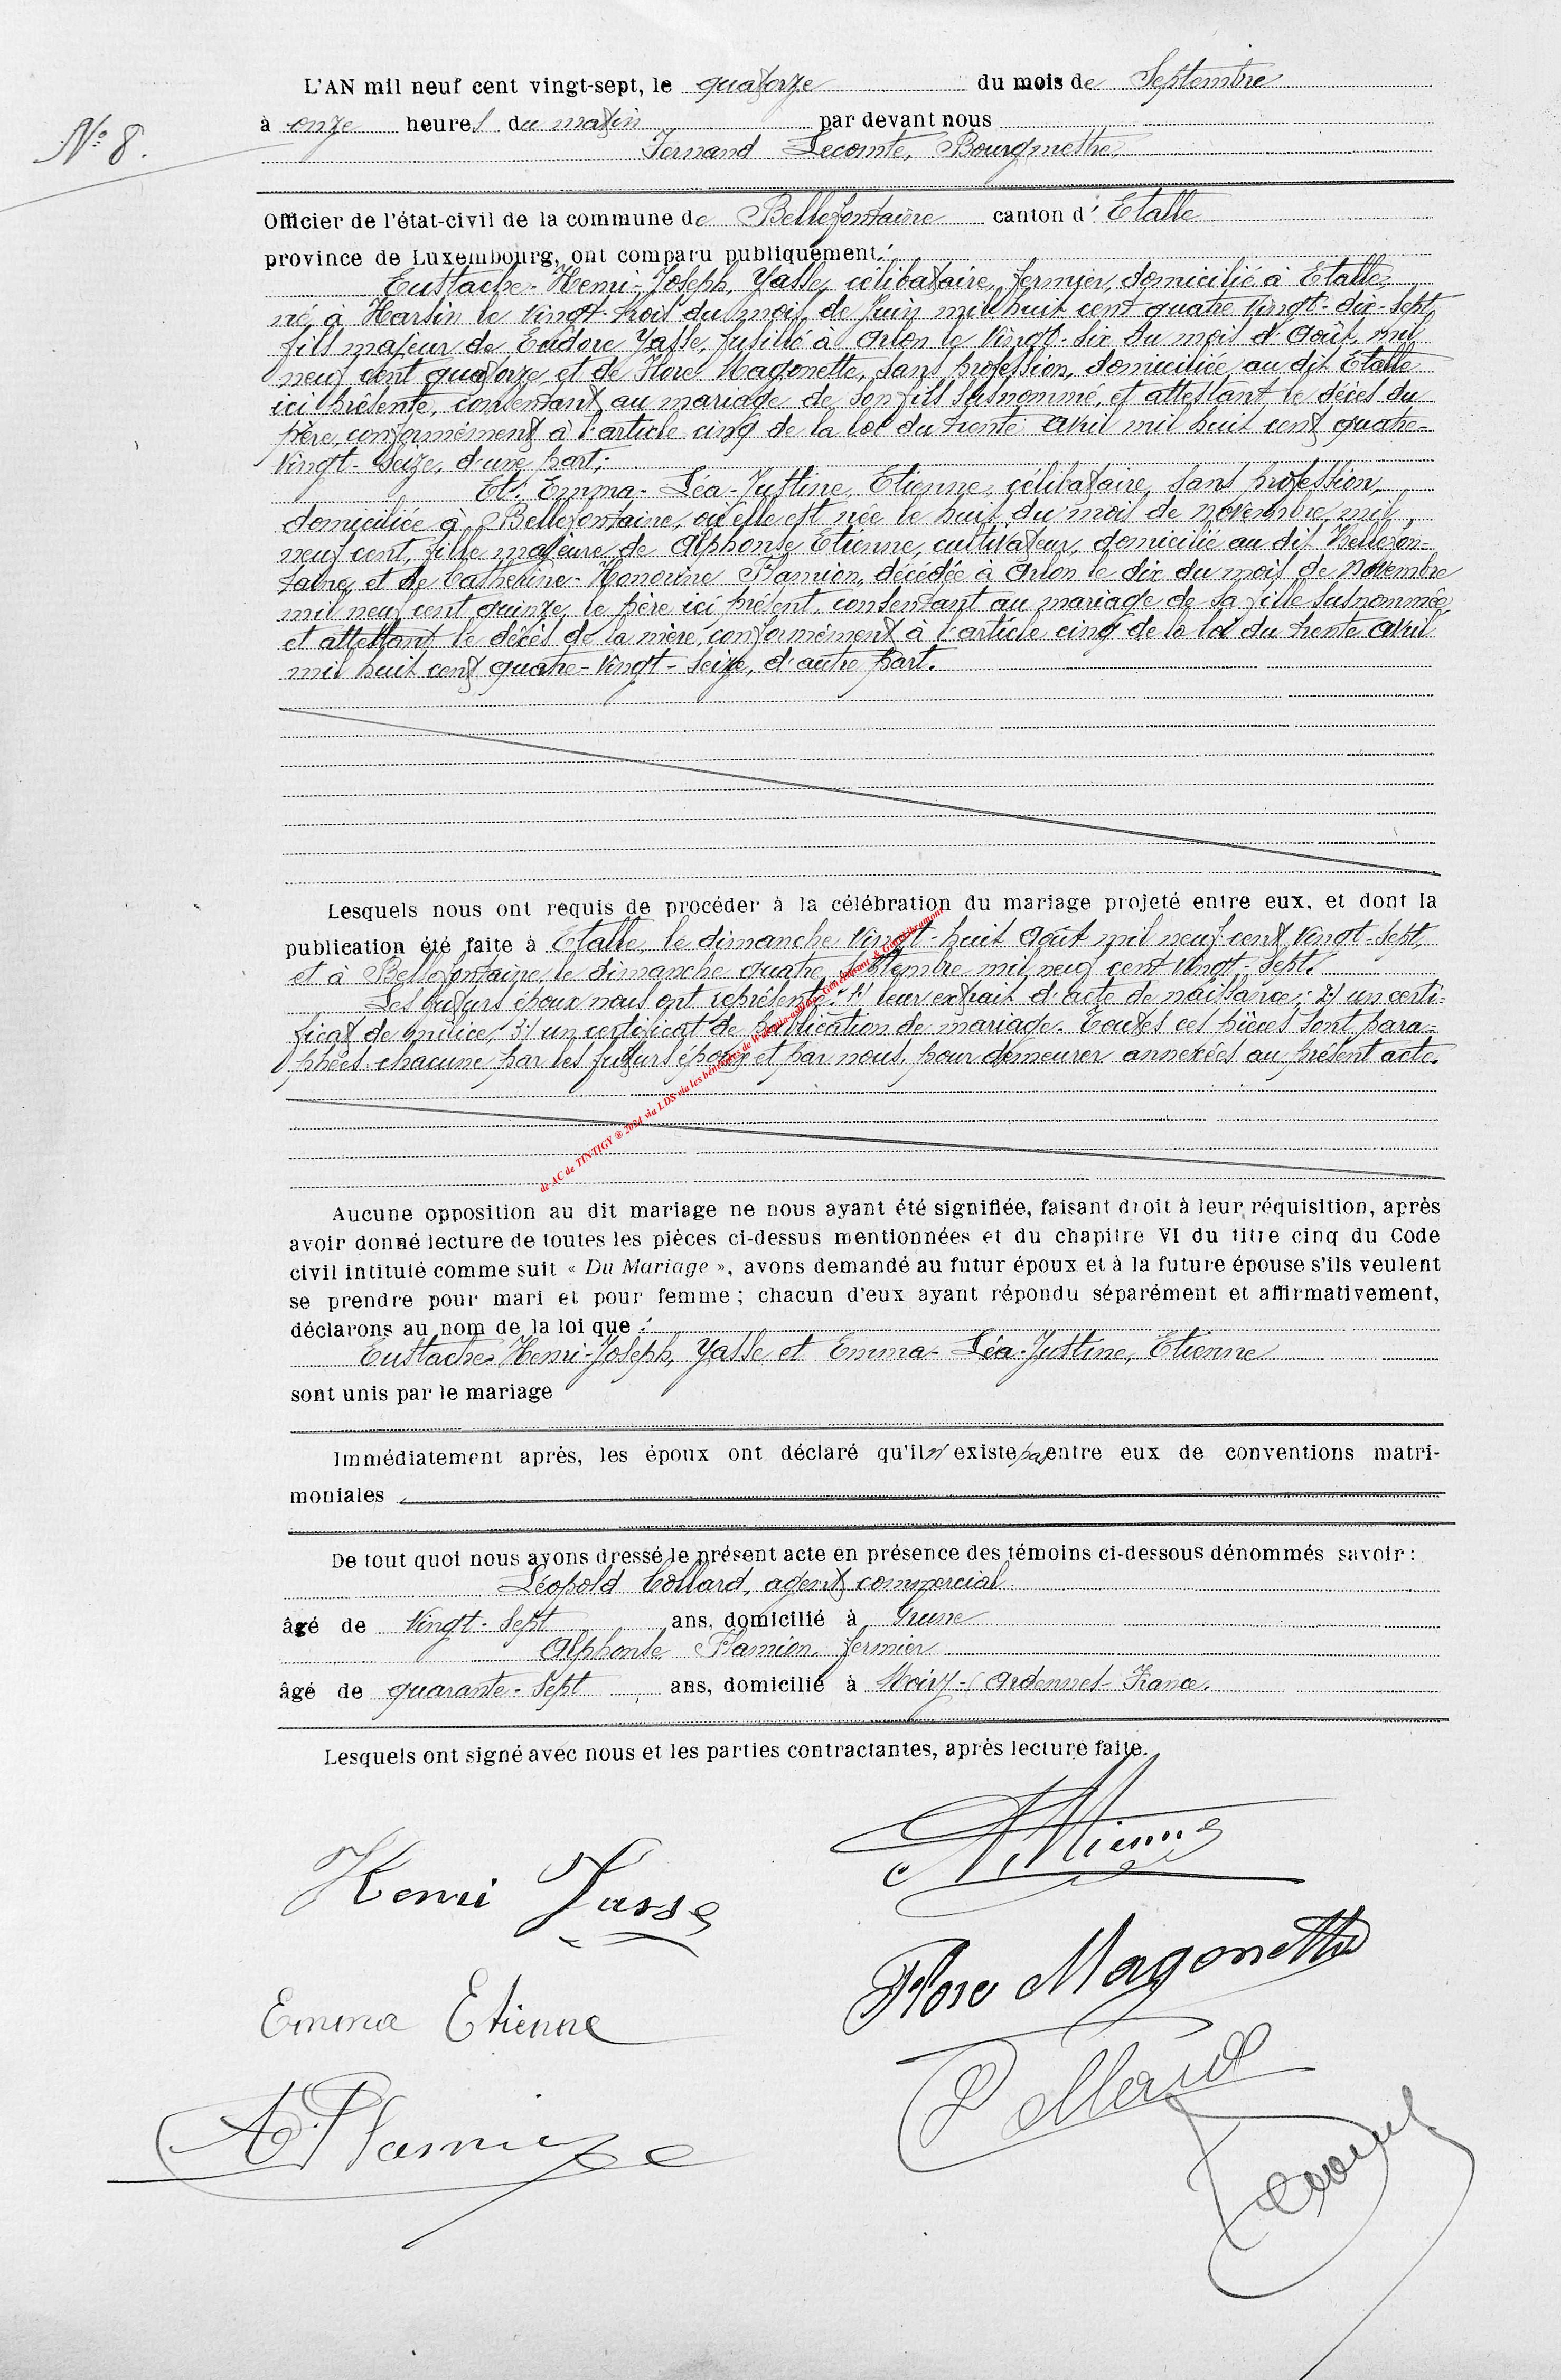 N° 8.
L'AN mil neuf cent vingt-sept, le quatorze du mois de Septembre
à onze heures du matin par devant nous
Fernand Lecomte, Bourgmestre,
Officier de l'état-civil de la commune de Bellefontaine canton d' Etalle
province de Luxembourg, ont comparu publiquement:
Eustache-Henri-Joseph, Yasse, célibataire, fermier, domicilié à Etalle,
né à Harsin le vingt-trois du mois de Juin mil huit cent quatre vingt-dix-sept,
fils majeur de Eudore Yasse, fusillé à Arlon le vingt-six du mois d'Août mil
neuf cent quatorze, et de Flore Magonette, sans profession, domiciliée au dit Etalle
ici présente, consentant au mariage de son fils susnommé, et attestant le décès du
père, conformément à l'article cinq de la loi du trente Avril mil huit cent quatre-
vingt-seize, d'une part;
Et: Emma-Léa-Justine, Etienne, célibataire, sans profession,
domiciliée à Bellefontaine, où elle est née le huit du mois de novembre mil
neuf cent, fille majeure de Alphonse Etienne, cultivateur, domicilié au dit Bellefon-
taine, et de Catherine-Honorine Flamion, décédée à Arlon le dix du mois de Novembre
mil neuf cent quinze, le père ici présent, consentant au mariage de sa fille susnommée,
et attestant le décès de la mère, conformément à l'article cinq de la loi du trente Avril
mil huit cent quatre-vingt-seize, d'autre part.
Lesquels nous ont requis de procéder à la célébration du mariage projeté entre eux, et dont la
publication été faite à Etalle, le dimanche vingt-huit Août mil neuf cent vingt-sept,
et à Bellefontaine, le dimanche quatre Septembre mil neuf cent vingt-sept.
Les futurs époux nous ont représenté: 1) leur extrait d'acte de naissance; 2) un certi-
ficat de milice, 3) un certificat de publication de mariage. Toutes ces pièces sont para-
phées chacune par les futurs époux et par nous, pour demeurer annexées au présent acte.
de AC de TINTIGY ® 2024 via LDS via les bénévoles de
Aucune opposition au dit mariage ne nous ayant été signifiée, faisant droit à leur réquisition, après
avoir donné lecture de toutes les pièces ci-dessus mentionnées et du chapitre VI du titre cinq du Code
civil intitulé comme suit « Du Mariage », avons demandé au futur époux et à la future épouse s'ils veulent
se prendre pour mari et pour femme ; chacun d'eux ayant répondu séparément et affirmativement,
déclarons au nom de la loi que :
Eustache-Henri-Joseph, Yasse et Emma-Léa-Justine, Etienne
sont unis par le mariage
Immédiatement après, les époux ont déclaré qu'il n'existe pas entre eux de conventions matri-
moniales
De tout quoi nous avons dressé le présent acte en présence des témoins ci-dessous dénommés savoir :
Léopold Collard, agent commercial
âgé de vingt-sept ans, domicilié à Grune
Alphonse Flamion, fermier
âgé de quarante-sept ans, domicilié à Moiry-(Ardennes-France.
Lesquels ont signé avec nous et les parties contractantes, après lecture faite.
A. Etienne
Henri Yasse
Flore Magonette
Emma Etienne
A. Flamion